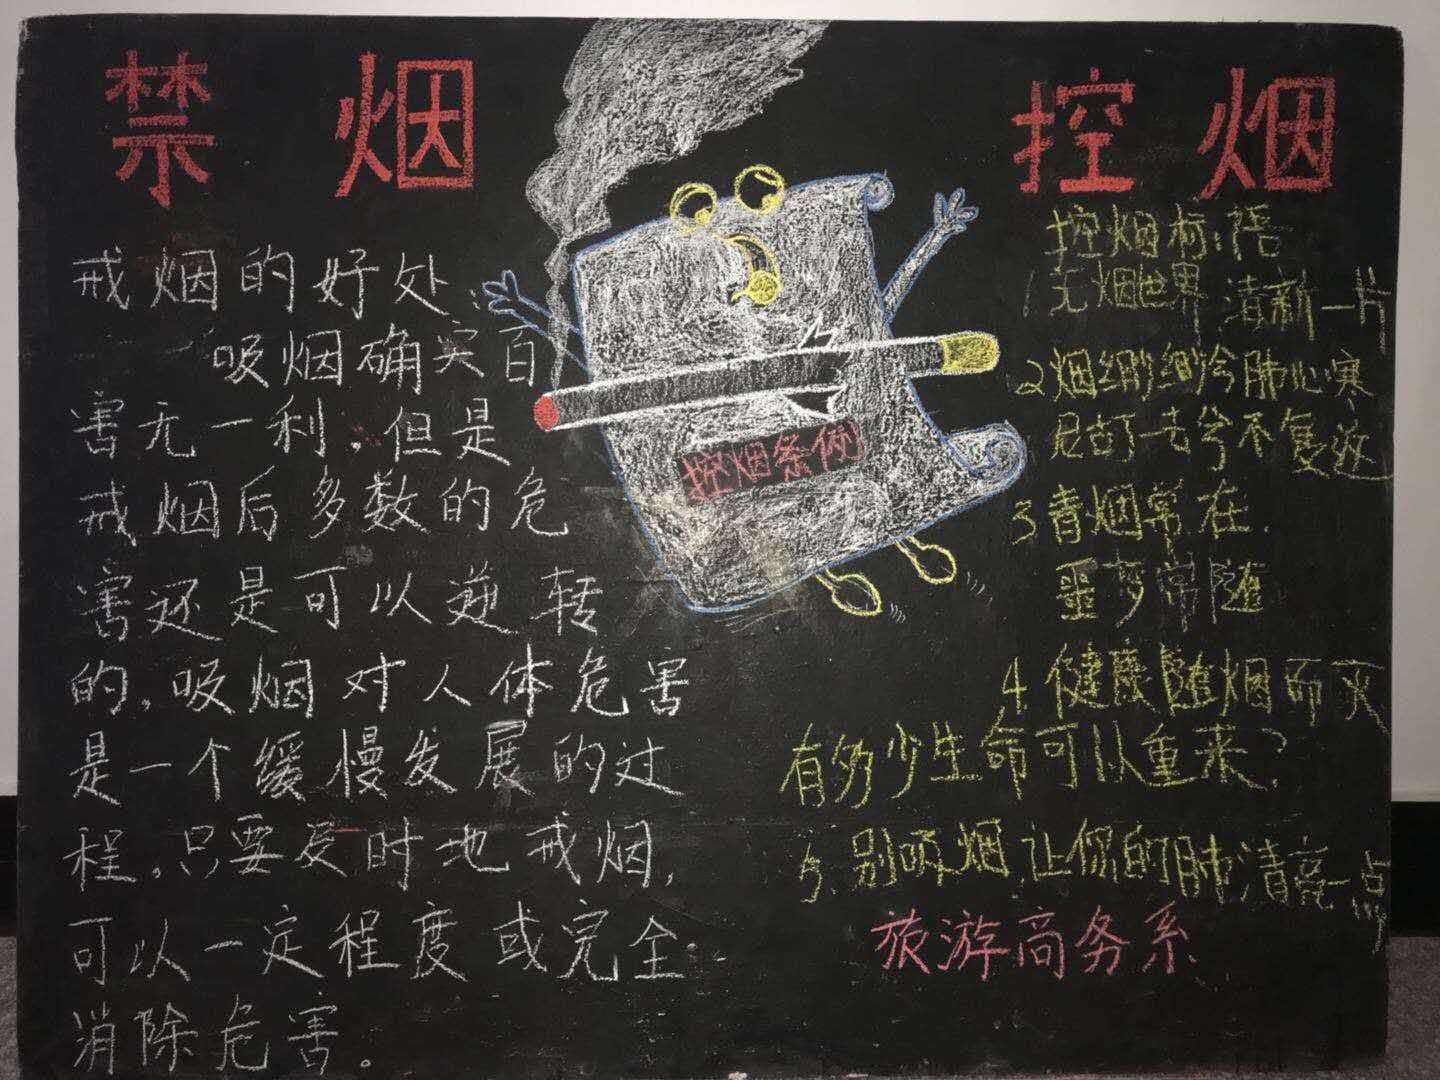 禁烟
戒烟的好处
吸烟确实百
害无一利,但是
戒烟后多数的危
害还是可以逆转
的,吸烟对人体危害
是一个缓慢发展的过
程,只要及时地戒烟,
可以一定程度或完全
消除危害。
控烟条例
控烟
控烟标语
1 无烟世界 清新一片
2 烟细细兮肺心寒
一去兮不复返
3 青烟常在,
噩梦常随
4 健康随烟而灭
有多少生命可以重来?
5. 别吸烟,让你的肺清亮一点
旅游商务系